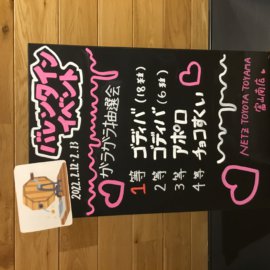 バレンタイン
イベント
2022.2.12-2.13
ガラガラ抽選会
1等 ゴディバ (18粒)
2等 ゴディバ (6粒)
3等 アポロ
4等 チョコすくい
NETZ TOYOTA TOYAMA
富山南店